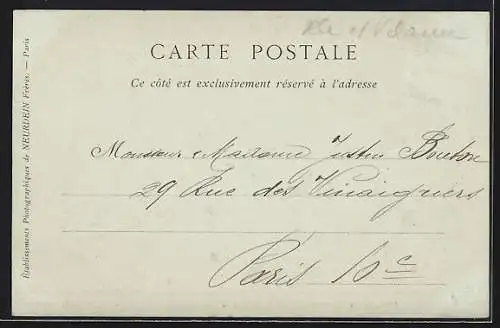 Ille et Vilaine
CARTE POSTALE
Ce côté est exclusivement réservé à l'adresse
Monsieur Madame Justin
29 Rue des Vinaigriers
Paris Xe
Établissements Photographiques de NEURDEIN Frères. — Paris